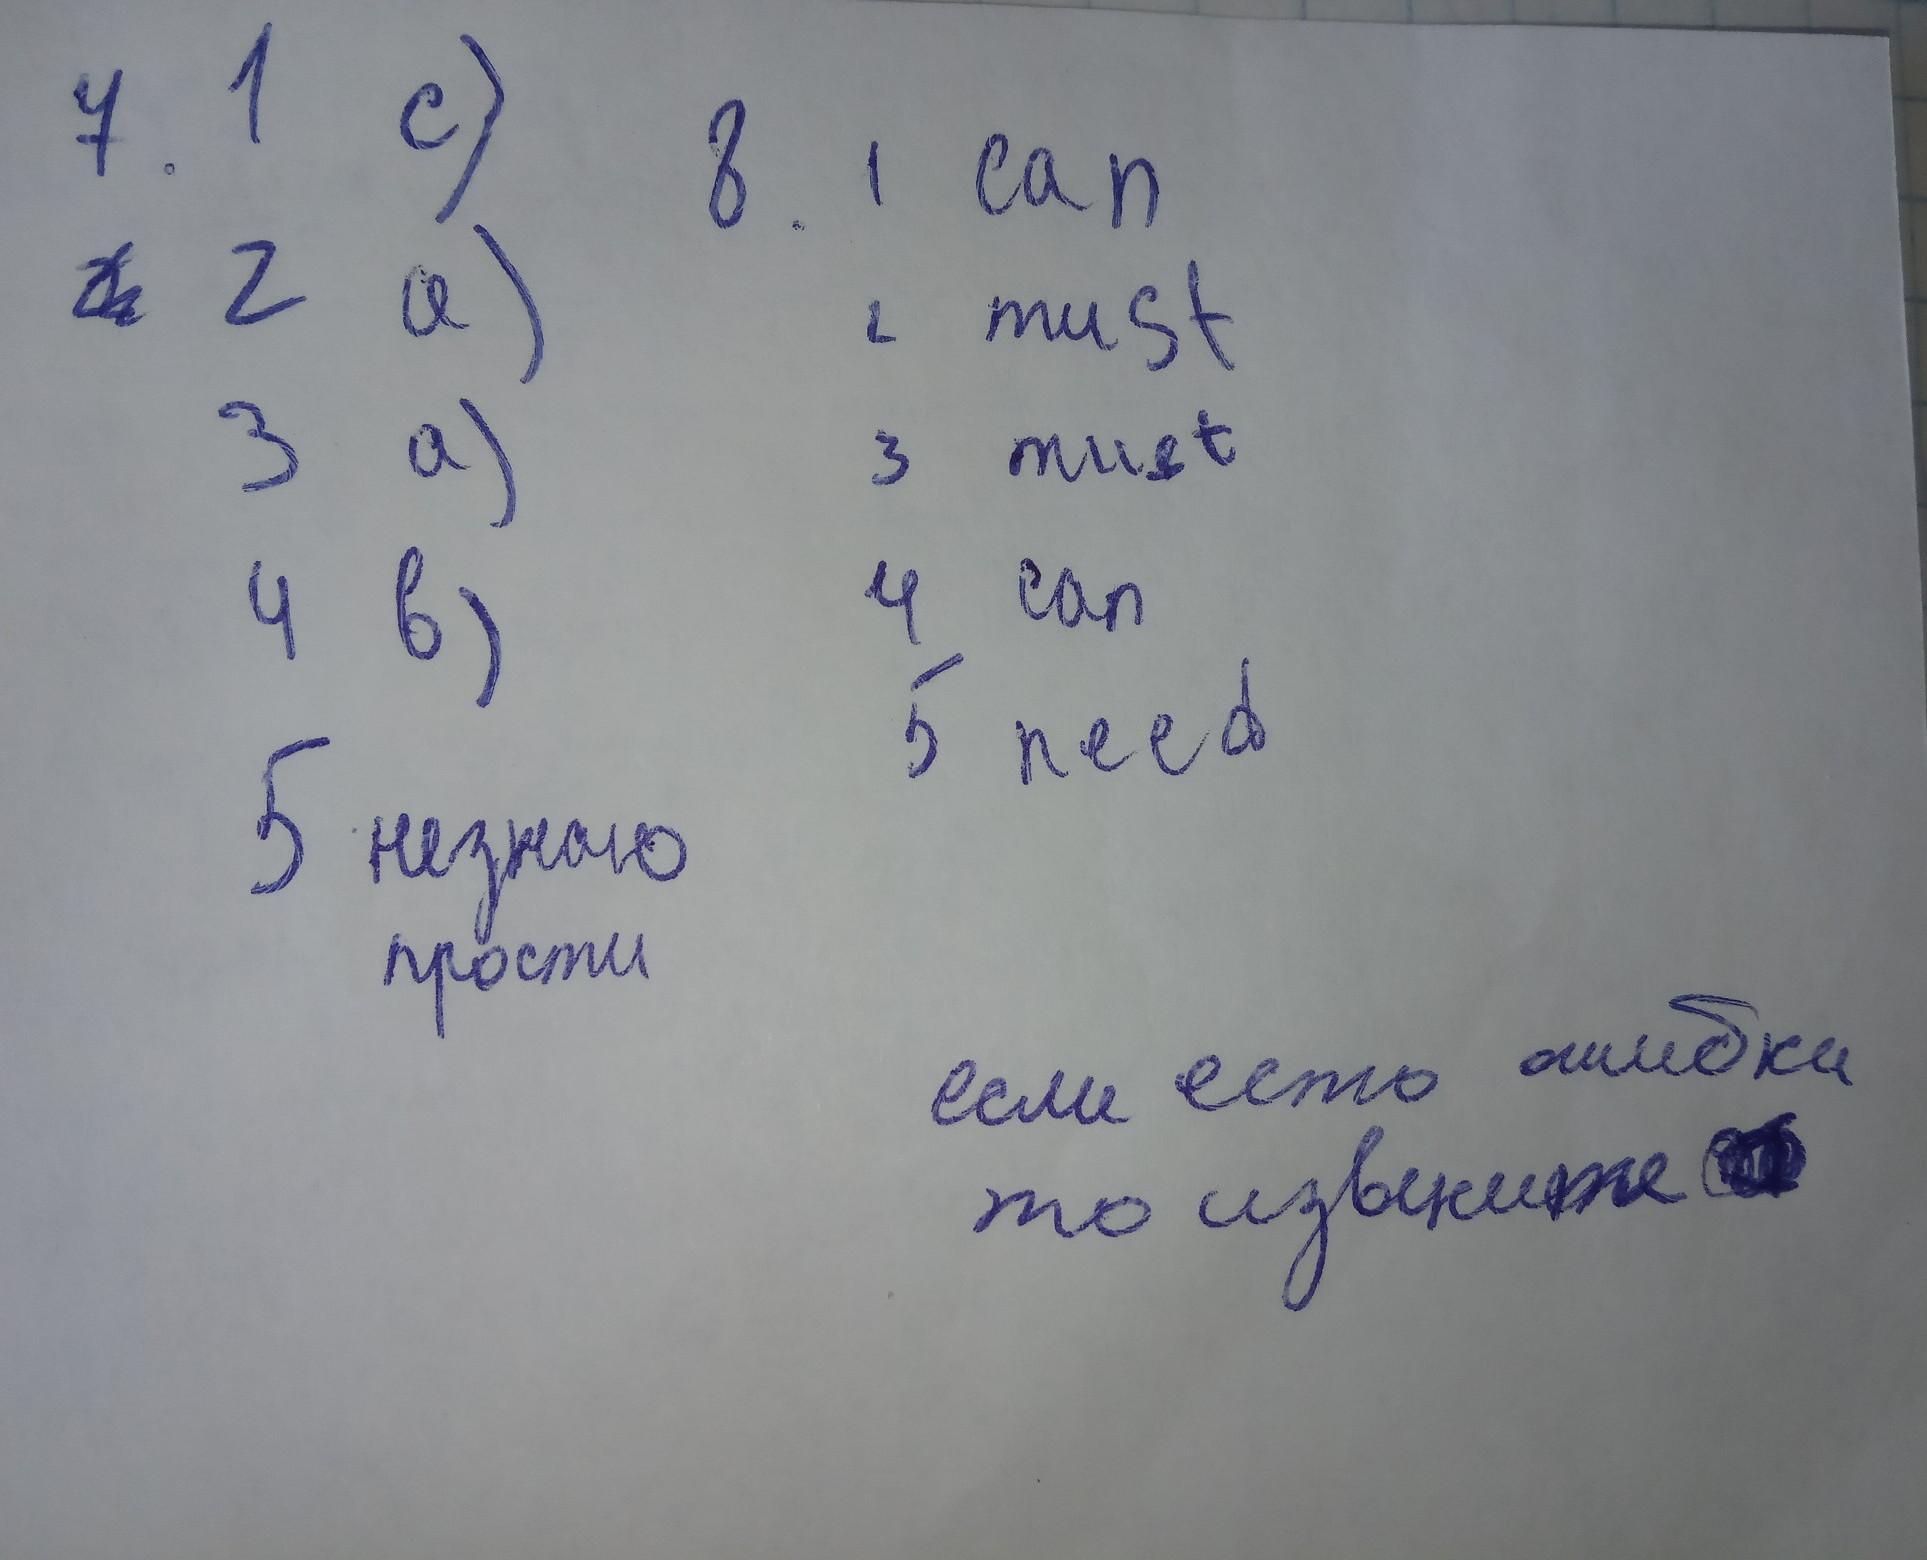 7. 1 c)
2 a)
3 a)
4 b)
5 незнаю
прости
8. 1 can
2 must
3 must
4 can
5 need
если есть ошибки
то извените